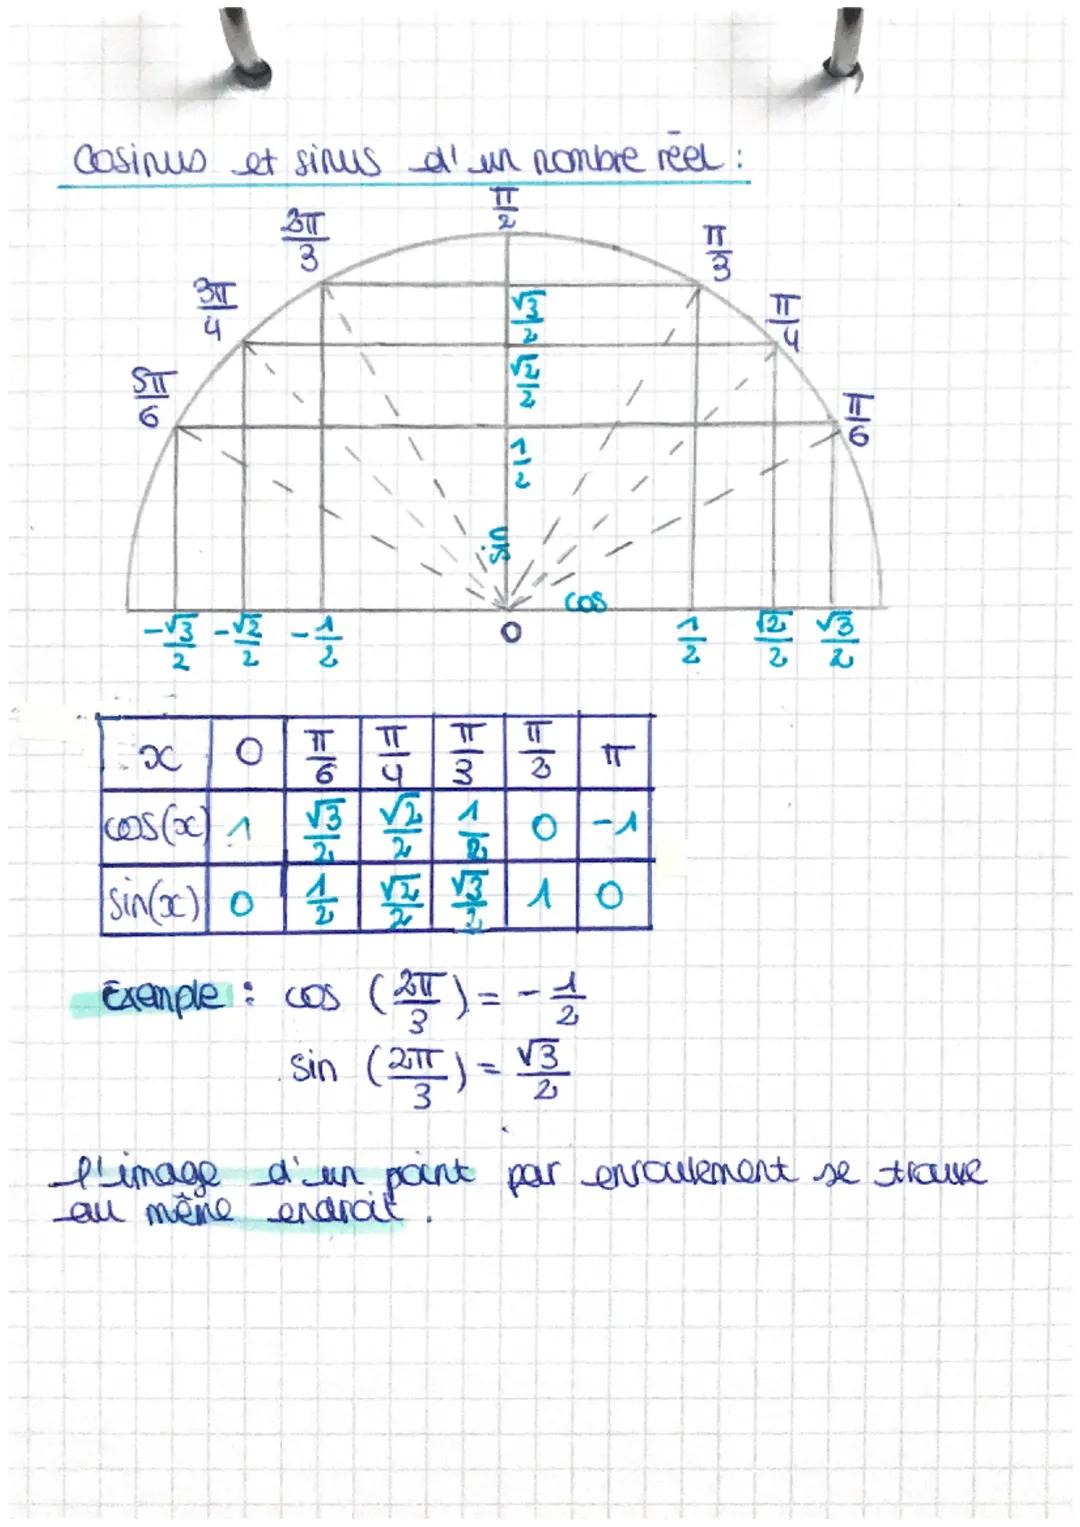 Cosinus et sinus d'un nombre réel :
π/2
2π/3
π/3
3π/4
π/4
√3/2
√2/2
5π/6
π/6
1/2
sin
cos
-√3/2 -√2/2 -1/2 0 1/2 √2/2 √3/2
x 0 π/6 π/4 π/3 π/2 π
cos(x) 1 √3/2 √2/2 1/2 0 -1
sin(x) 0 1/2 √2/2 √3/2 1 0
Exemple : cos (2π/3) = - 1/2
sin (2π/3) = √3/2
l'image d'un point par enroulement se trouve
au même endroit.